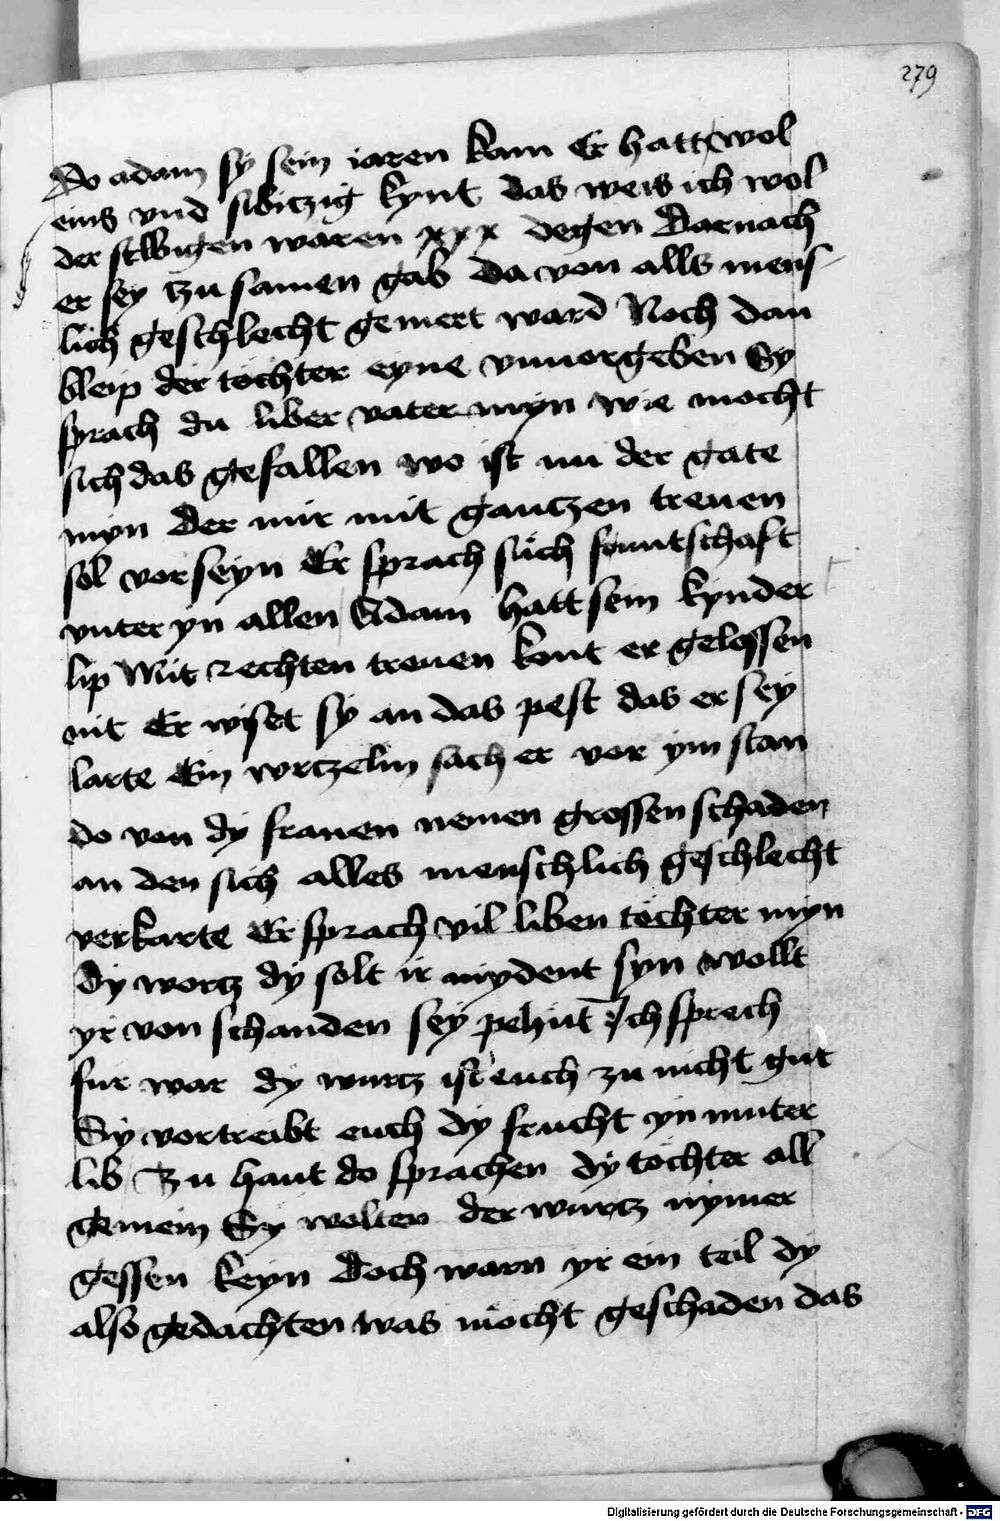 279
Do adam sy sein iaren kam Er hatt wol
eins vnd sibitzig kynt das weis ich wol
der selbigen waren xxx degen Darnach
er sey tzu samen gab da von alls mens
lich geschlecht gemert ward Noch dan
bleip der tochter eyne vnuorgeben Sy
sprach du liber vater myn wie mocht
sich das gefallen wo ist nu der gate
myn Der mir mit gantzen treuen
sol vor seyn Er sprach such
vnter yn allen Adam hatt sein kynder
lip Mit rechten treuen kont er gelossen
nit Er wiset sy an das pest das er sey
larte Ein wrczelin sach er vor ym stan
do von dy frauen nemen grossen schaden
an den sich alles menschlich geschlecht
verkarte Er sprach vil liben tochter myn
Dy wortz dy solt ir mydent syn wollt
yr von schanden sey pehut Ich sprech
fur war dy wurtz ist euch zu nicht gut
Sy vortreibt euch dy frucht yn muter
lib Zu hant do sprachen dy tochter all
gemein Sy wolten der wurtz nymer
gessen keyn Doch warn yr ein teil dy
also gedachten was möcht geschaden das
Digitalisierung gefördert durch die Deutsche Forschungsgemeinschaft - DFG